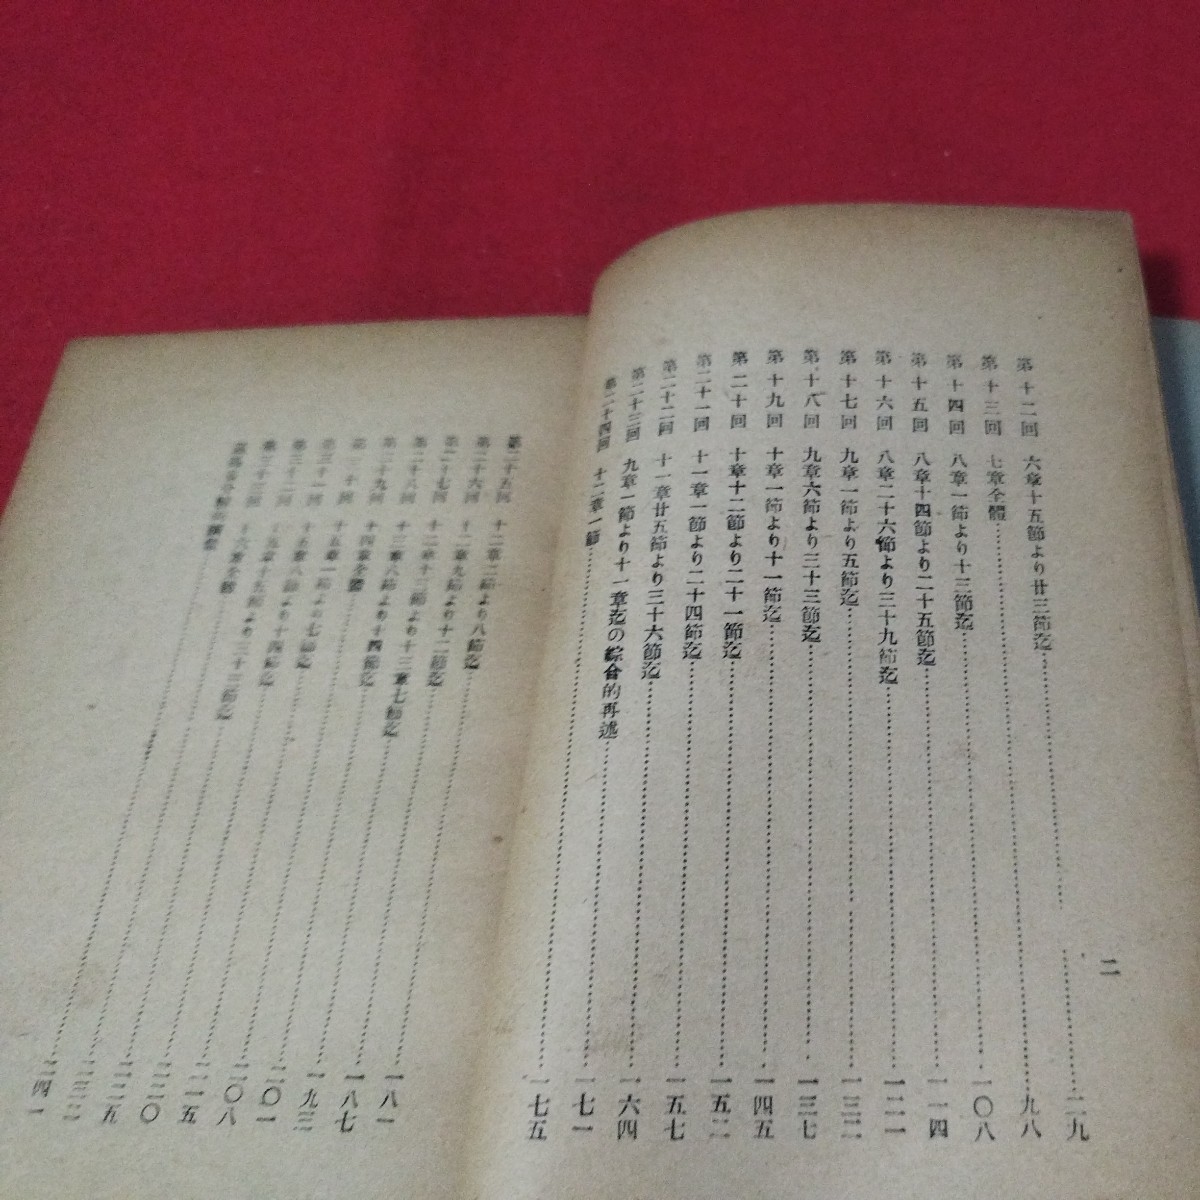 二
第十二回 六章十五節より廿三節迄…………二九
第十三回 七章全體…………九八
第十四回 八章一節より十三節迄…………一〇八
第十五回 八章十四節より二十五節迄…………一一四
第十六回 八章二十六節より三十九節迄…………一二一
第十七回 九章一節より五節迄…………一三二
第十八回 九章六節より三十三節迄…………一三七
第十九回 十章一節より十一節迄…………一四五
第二十回 十章十二節より二十一節迄…………一五二
第二十一回 十一章一節より二十四節迄…………一五七
第二十二回 十一章廿五節より三十六節迄…………一六四
第二十三回 九章一節より十一章迄の綜合的再述…………一七一
第二十四回 十二章一節…………一七五
第二十五回 十二章二節より八節迄…………一八一
第二十六回 十二章九節より十二節迄…………一八七
第二十七回 十二章十三節より十三章七節迄…………一九三
第二十八回 十三章八節より十四節迄…………二〇一
第二十九回 十四章全體…………二〇八
第三十回 十五章一節より七節迄…………二一五
第三十一回 十五章八節より十四節迄…………二二〇
第三十二回 十五章十五節より三十三節迄…………二二五
第三十三回 十六章全體…………二三二
…………二四一